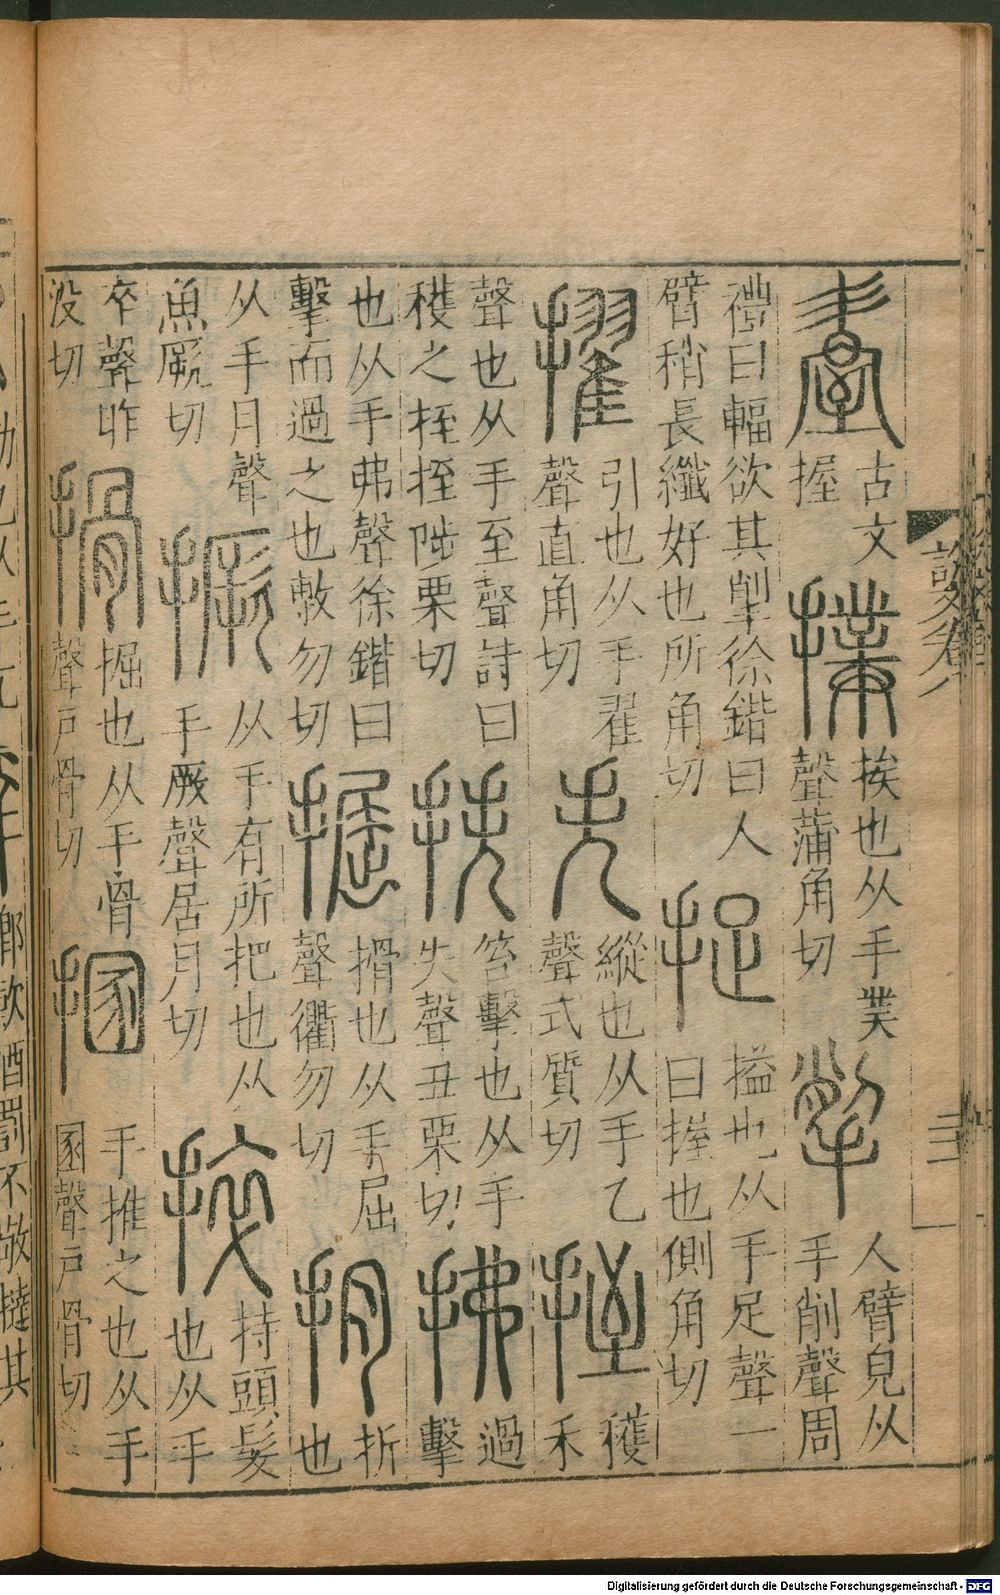 古文握 撲 挨也从手菐聲蒲角切 揱 人臂皃从手削聲周
禮曰輻欲其揱徐鍇曰人臂稍長纖好也所角切 捉 搤也从手足聲一曰握也側角切
擢 引也从手翟聲直角切 失 縱也从手乙聲式質切 挃 穫禾
聲也从手至聲詩曰穫之挃挃陟栗切 抶 笞擊也从手失聲丑栗切 拂 過擊
也从手弗聲徐鍇曰擊而過之也敷勿切 掘 搰也从手屈聲衢勿切 抈 折也
从手月聲魚厥切 撅 从手有所把也从手厥聲居月切 捽 持頭髮也从手
卒聲昨没切 搰 掘也从手骨聲戶骨切 㨡 手推之也从手圂聲戶骨切
鄉飲酒罰不敬撻其
Digitalisierung gefördert durch die Deutsche Forschungsgemeinschaft - DFG